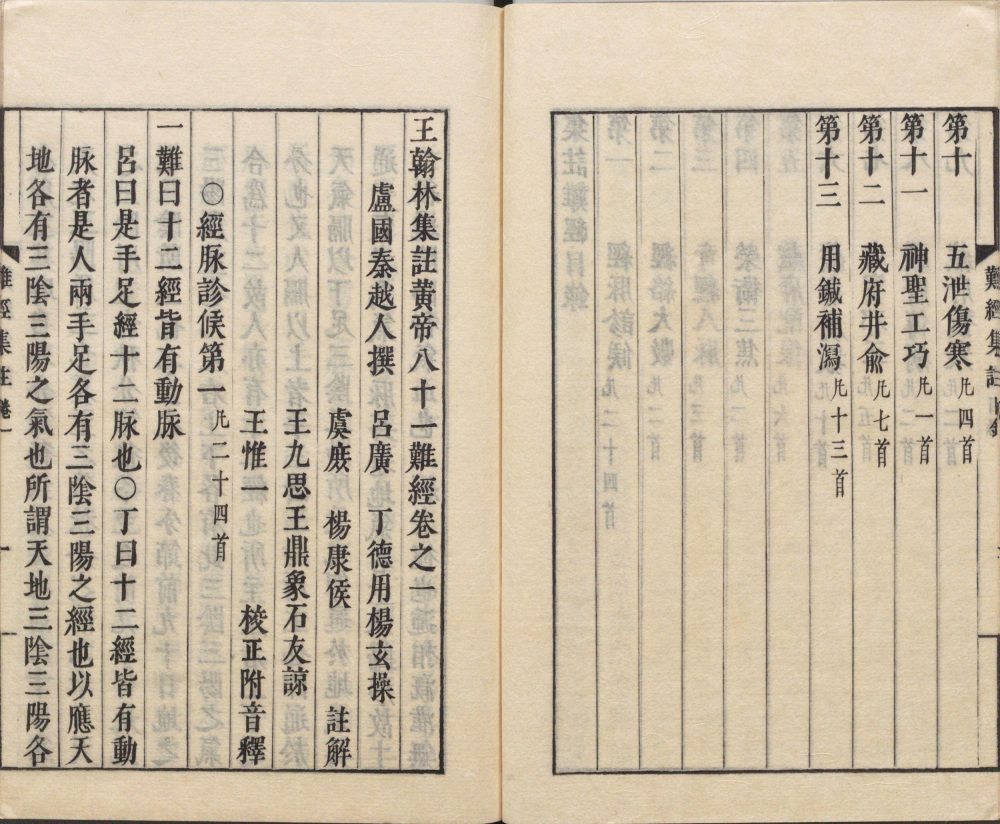 第十　五泄傷寒凡四首
第十一　神聖工巧凡一首
第十二　藏府井兪凡七首
第十三　用鍼補瀉凡十三首
難經集註
王翰林集註黃帝八十一難經卷之一
盧國秦越人撰　呂廣　丁德用　楊玄操
虞庻　楊康侯　註解
王九思王鼎象石友諒
王惟一　挍正附音釋
○經脉診候第一凡二十四首
一難曰十二經皆有動脉
呂曰是手足經十二脉也○丁曰十二經皆有動
脉者是人兩手足各有三陰三陽之經也以應天
地各有三陰三陽之氣也所謂天地三陰三陽各
難經集註卷一　一